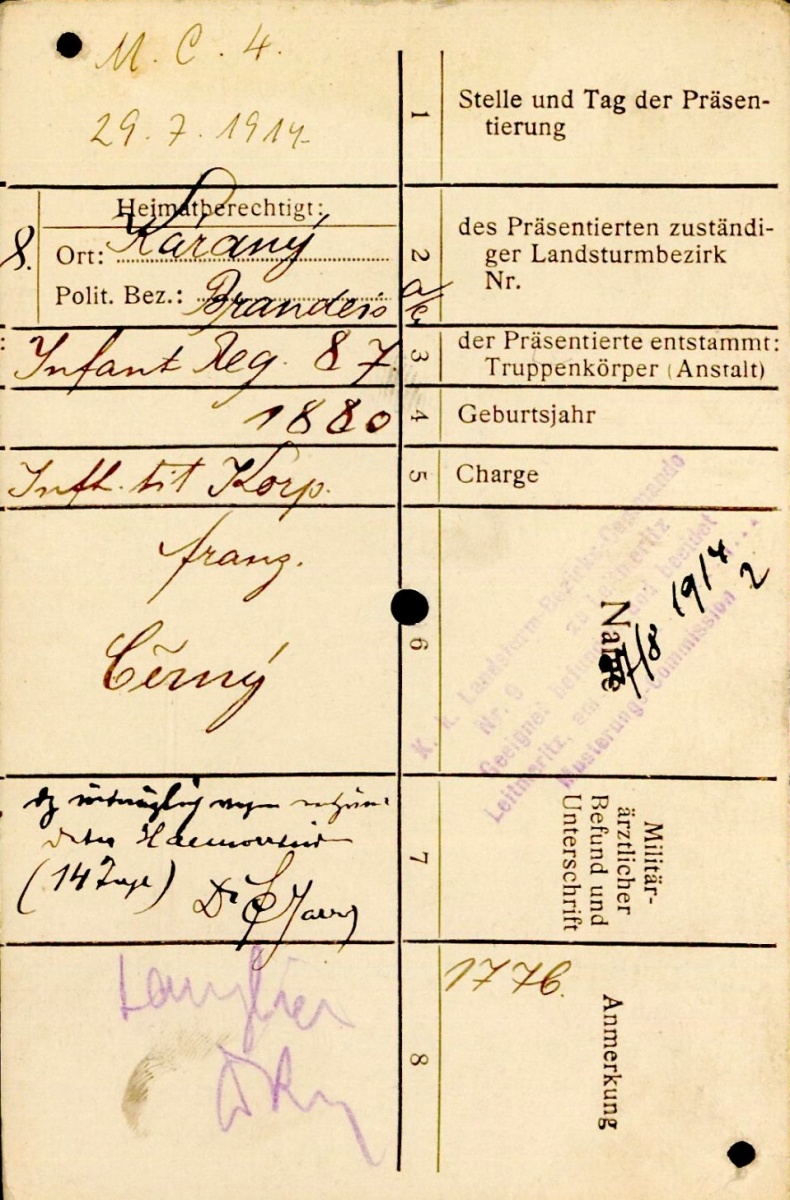 M. C. 4.
29. 7. 1914
1
Stelle und Tag der Präsen-
tierung
Heimatberechtigt:
8.
Ort: Káraný
Polit. Bez.: Brandeis a/E
2
des Präsentierten zuständi-
ger Landsturmbezirk
Nr.
Infant Reg. 87.
3
der Präsentierte entstammt:
Truppenkörper (Anstalt)
1880
4
Geburtsjahr
Inft. tit Korp.
5
Charge
franz.
Černý
6
Name
K. k. Landsturm-Bezirks-Commando
Nr. 9 zu Leitmeritz
Geeignet befunden und beeidet
Leitmeritz, am 7/8 1914
Musterungs-Commission 2
(14 Tage) Dr
7
Militär-
ärztlicher
Befund und
Unterschrift
8
1776.
Anmerkung